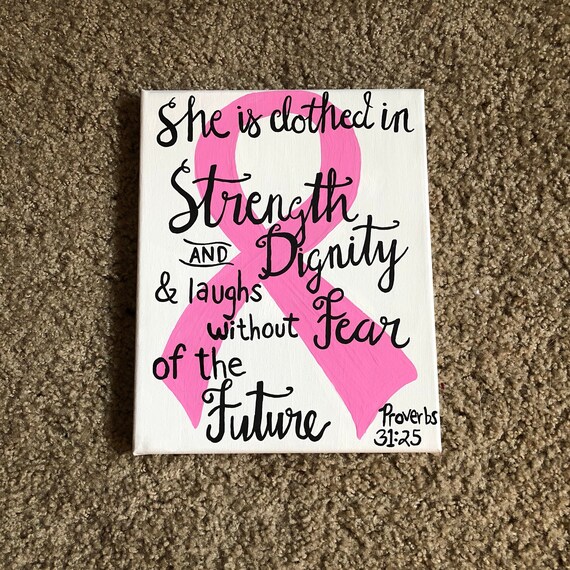 She is clothed in
Strength
AND Dignity
& laughs
without Fear
of the
Future
Proverbs
31:25